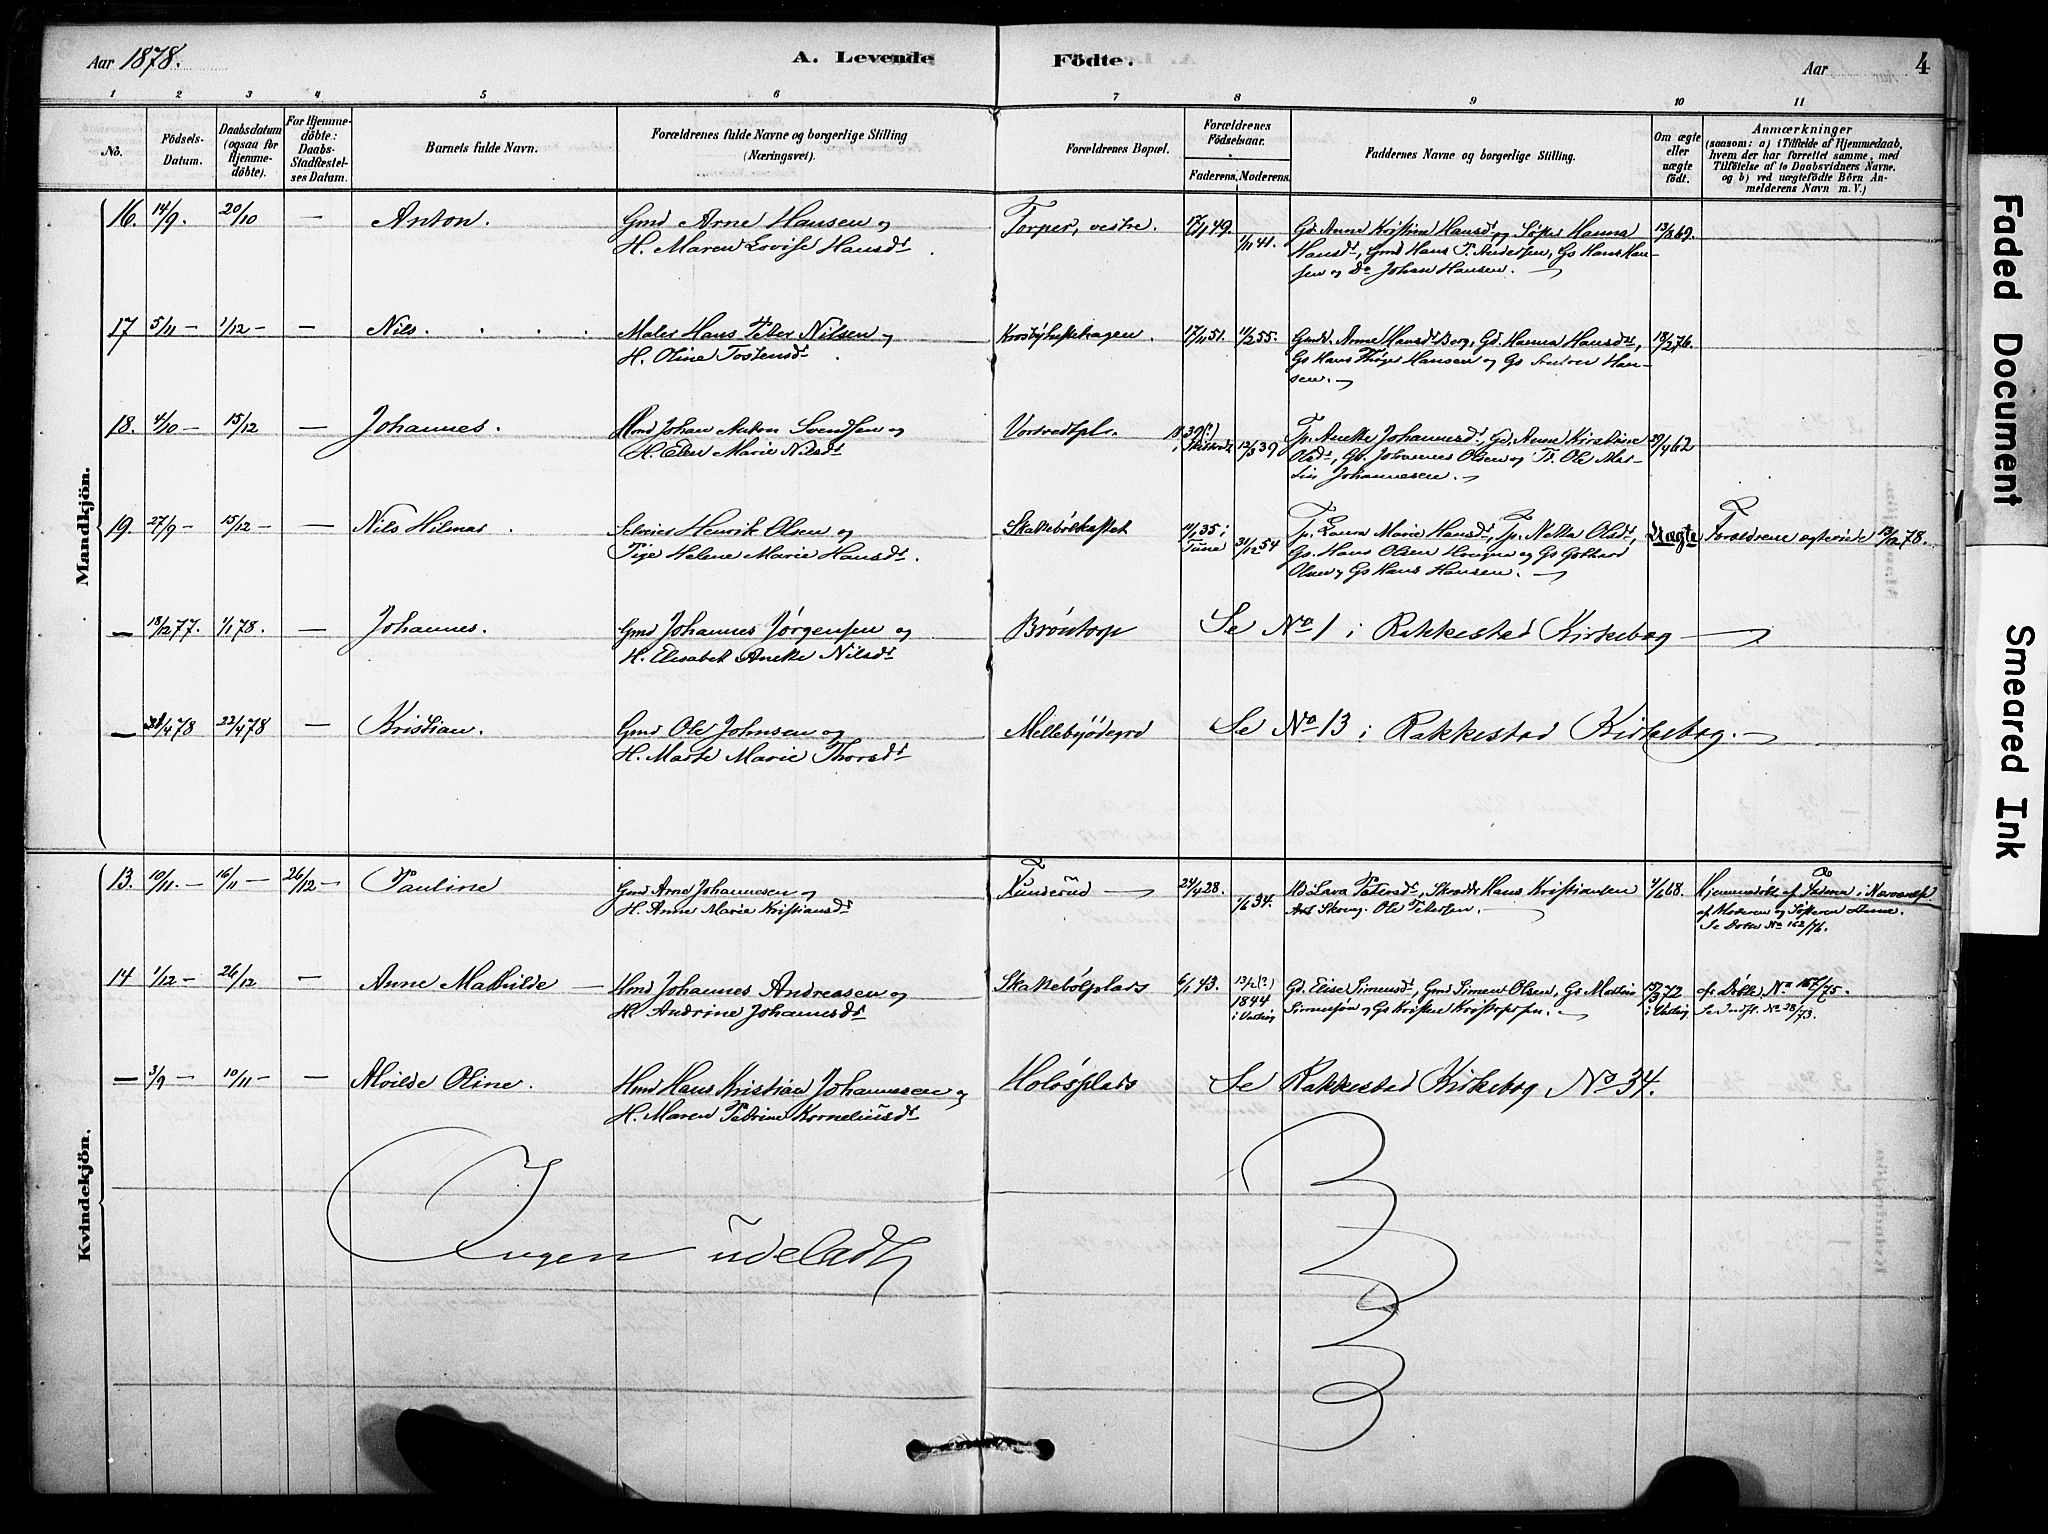 Aar 1878.
A. Levende Födte.
Aar
4
1 2 3 4 5 6 7 8 9 10 11
No.
Födsels-Datum.
Daabsdatum (ogsaa for Hjemme-döbte).
For Hjemme-döbte: Daabs-Stadfæstel-ses Datum.
Barnets fulde Navn.
Forældrenes fulde Navne og borgerlige Stilling (Næringsvei).
Forældrenes Bopæl.
Forældrenes Födselsaar.
Faderens. Moderens.
Faddernes Navne og borgerlige Stilling.
Om ægte eller uægte födt.
Anmærkninger
(saasom: a) i Tilfælde af Hjemmedaab, hvem der har forrettet samme, med Tilföielse af to Daabsvidners Navne. og b) ved uægtefödte Börn An-melderens Navn m. V.)
Mandkjön.
16. 14/9. 20/10 — Anton. Gmd Arne Hansen og
H. Maren Lovise Hansdt.
Torper, vestre. 17/1 49. 1/11 41.
Gd. Anne Kristine Hansdt, og Søster Hanna
Hansdt, Gmd Hans T. Andersen, Gs Hans Han-
sen og Do Johan Hansen. —
13/8 69.
17 5/11 — 1/12 — — Nils. Maler Hans Peter Nilsen og
H. Oline Tostensdt.
17/11 51. 11/2 55.
Gmdk. Anne Hansdt Berg, Gd. Hanna Hansdt,
Gs Hans Thøger Hansen og Gs Anton Han-
sen. —
18/2 76.
18. 4/10 — 15/12 — Johannes. Hmd Johan Anton Svendsen og
H. Elen Marie Nilsdt
39(?) 12/3 39
Tp. Anette Johannesdt, Gd. Anne Kirstine
Olsdt, Gs. Johannes Olsen og Ts. Ole Mar-
tin Johannesen. —
29/4 62
19. 27/9 — 15/12 — — Nils Hilmar. Selveier Henrik Olsen og
Pige Helene Marie Hansdt.
11/1 35 i Tune 31/12 54
Tp. Laura Marie Hansdt, Tp. Netta Olsdt,
Gs. Hans Olsen og Gs Gothard
Olsen og Gs Hans Hansen. —
Uægte
Forældrene ægteviede 13/12 78.
— 18/12 77. 1/1 78. — Johannes. Gmd Johannes Jørgensen og
H. Elisabet Anette Nilsdt
Brøntorp
Se No 1 i Rakkestad Kirkebog —
— 22/4 78 — Kristian. Gmd Ole Johnsen og
H. Marte Marie Thorsdt
Se No 13 i Rakkestad Kirkebog. —
Kvindekjön.
13. 10/11. — 16/11 — 26/12 — Pauline Gmd Arne Johannesen og
H. Anne Marie Kristiansdt
Funderud — 24/4 28. 1/6 34.
Lava Petersdt, Skrædder Hans Kristiansen
Ole Petersen. —
4/1 68.
Hjemmedøbt af Faderen i Nærværelse
af Moderen og Søsteren Anne.
Se Døbte No 162/76.
14 1/12 — 26/12 — Anne Mathilde — Hmd Johannes Andreasen og
H. Andrine Johannesdt
Skaltebölplads 6/1 43. 13/2(?) 1844
Gd. Elise Simensdt, Gmd Simen Olsen, Gs Martin
Simensøn og Gs Kristen Kristoffersen. —
13/3 72
cfr Døbte No 167/75.
Se Indfl. No 28/73.
— 3/9 — 10/11 — — Alvilde Oline. Hmd Hans Kristian Johannesen og
H. Maren Petrine Korneliusdt
Holøsplads
Se Rakkestad Kirkebog No 34.
Ingen udeladt
Faded Document
Smeared Ink